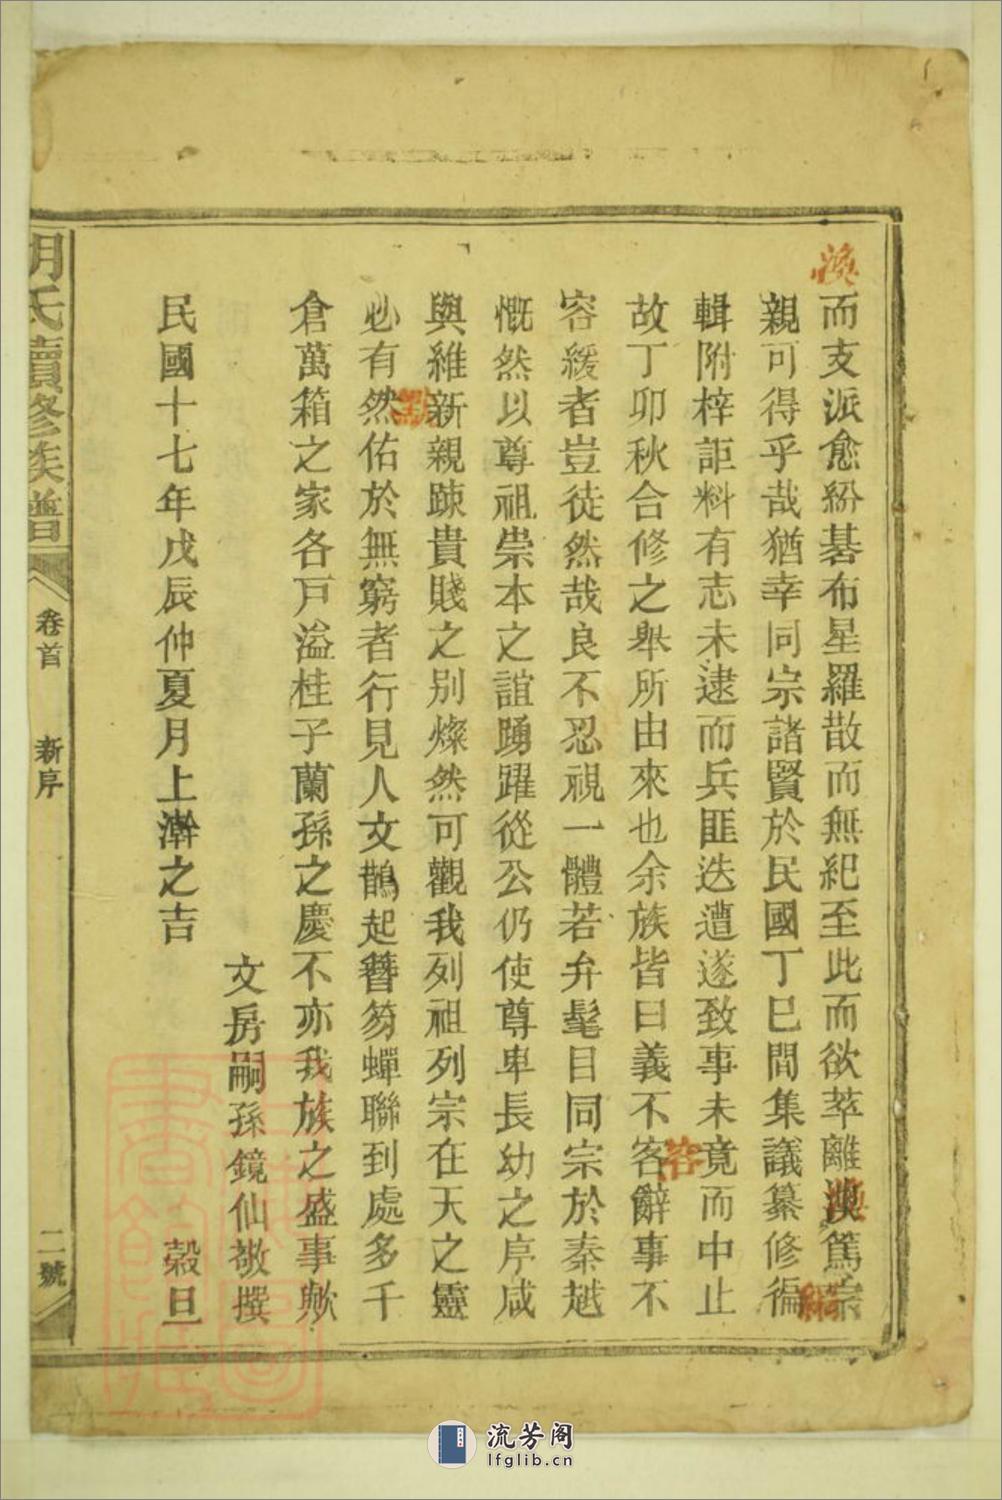 而支派愈紛碁布星羅散而無紀至此而欲萃離渙篤宗
親可得乎哉猶幸同宗諸賢於民國丁巳間集議纂修徧
輯附梓詎料有志未逮而兵匪迭遭遂致事未竟而中止
故丁卯秋合修之舉所由來也余族皆曰義不客辭事不
容緩者豈徒然哉良不忍視一體若弁髦目同宗於秦越
慨然以尊祖崇本之誼踴躍從公仍使尊卑長幼之序咸
與維新親踈貴賤之別燦然可觀我列祖列宗在天之靈
必有然佑於無窮者行見人文鵲起簪笏蟬聯到處多千
倉萬箱之家各戸溢桂子蘭孫之慶不亦我族之盛事歟
文房嗣孫鏡仙敬撰
民國十七年戊辰仲夏月上澣之吉 榖旦
胡氏續修族譜 卷首 新序 二號
渙
編
容
默
流芳阁
lfglib.cn